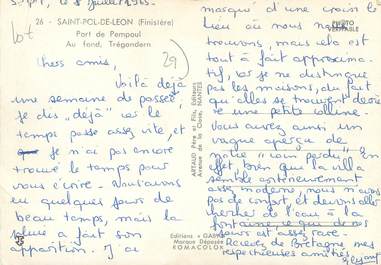 le 8 Juillet 1965.
26 - SAINT-POL-DE-LEON (Finistère)
Port de Pempoul
Au fond, Trégondern
29
Chers amis,
Voilà déjà
une semaine de passée
Je dis "déjà" car le
temps passe assez vite, et
je n'ai pas encore
trouvé le temps pour
vous écrire. Nous avons
eu quelques jours de
beau temps, mais la
pluie a fait son
apparition. J'ai
ARTAUD Père et Fils, Editeurs
Avenue de la Close, NANTES
Editions "GABY"
Marque Déposée
ROMACOLOR
PHOTO
VERITABLE
marqué d'une croix le
lieu où nous nous
trouvons, mais cela est
tout à fait approxima-
tif, car je ne distingue
pas les maisons, du fait
qu'elles se trouvent derriè
re une petite colline.
Vous aurez ainsi un
vague aperçu de
notre "coin perdu", en
effet bien que la villa
semble
assez moderne, nous n'avons
pas de confort, et devons aller
chercher de l'eau à la
fontaine, ce qui de nos
jours est assez rare.
Recevez de Bretagne, mes
respectueuses amitiés